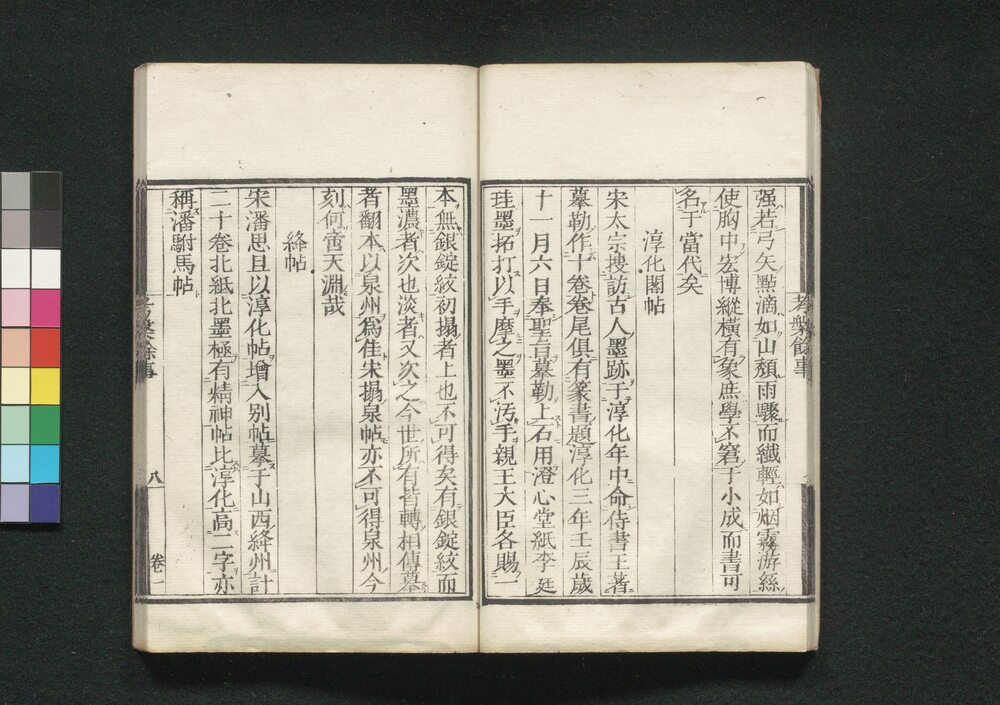 强若弓矢點滴如山頹雨驟而纖輕如烟霧游絲
使胸中宏博縱橫有象庶學不窘于小成而書可
名于當代矣
淳化閣帖
宋太宗搜訪古人墨跡于淳化年中命侍書王著
摹勒作十卷卷尾俱有篆書題淳化三年壬辰歲
十一月六日奉聖旨摹勒上石用澄心堂紙李廷
珪墨拓打以手摩之墨不汚手親王大臣各賜一
本無銀錠紋初搨者上也不可得矣有銀錠紋而
墨濃者次也淡者又次之今世所有皆轉相傳摹
者翻本以泉州爲佳宋搨泉帖亦不可得泉州今
刻何啻天淵哉
絳帖
宋潘思旦以淳化帖增入別帖摹于山西絳州計
二十卷北紙北墨極有精神帖比淳化高二字亦
稱潘駙馬帖
考槃餘事
八
卷一